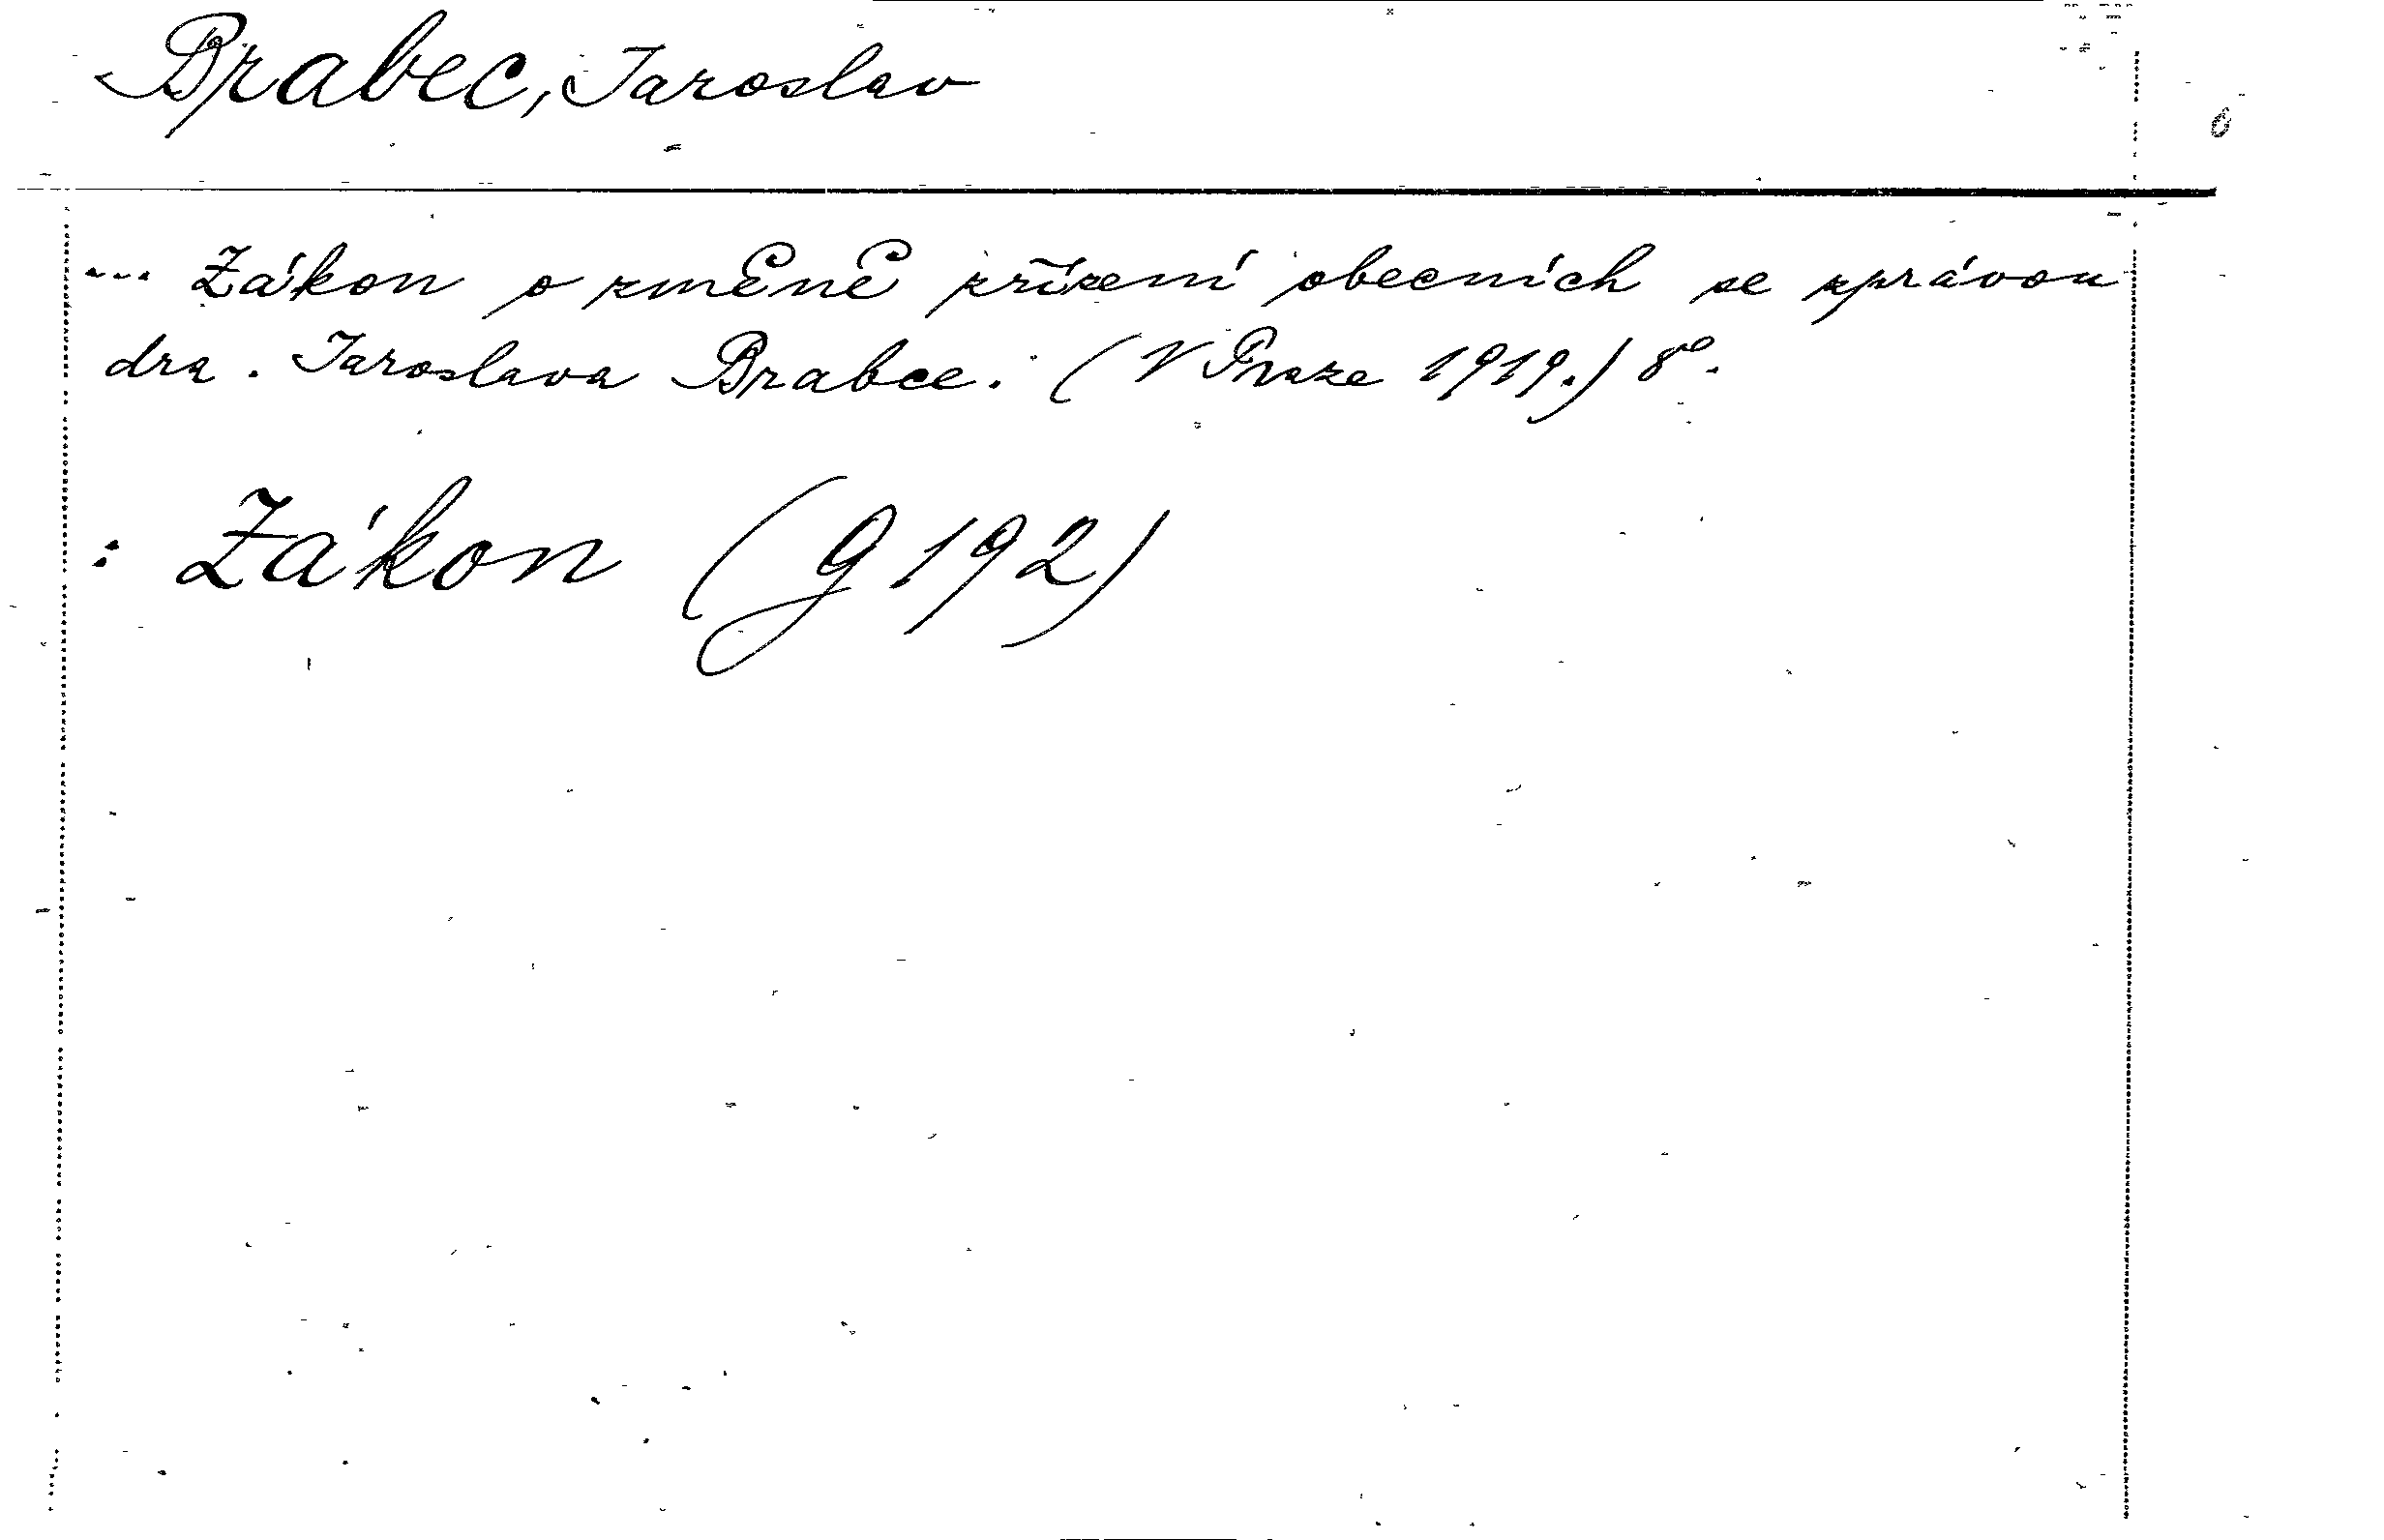 Brabec, Jaroslav
... Zákon o změně zřízení obecních se zprávou
dra. Jaroslava Brabce. (V Praze 1919.) 8°.
: Zákon (g 192)